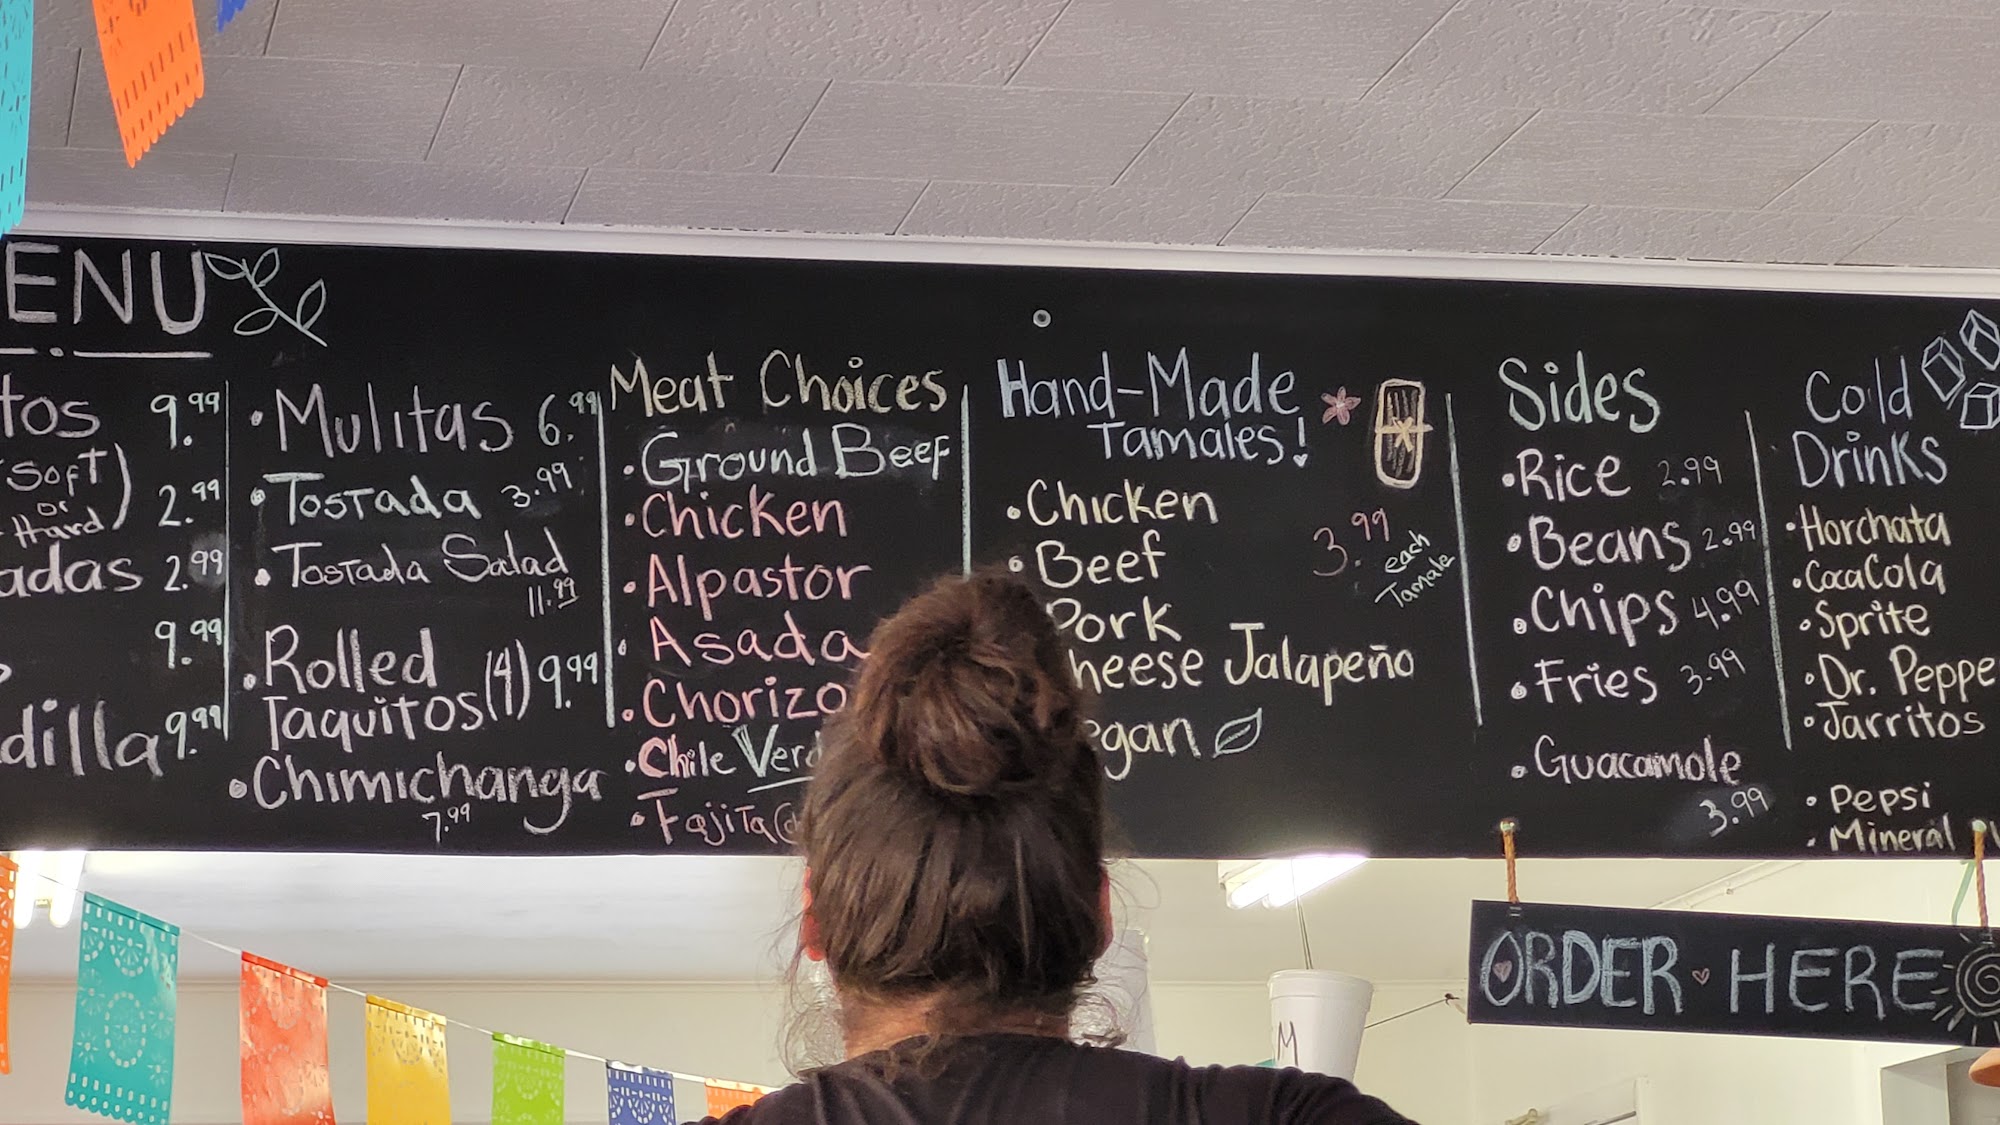 ENU
tos 9.99
(Soft or Hard) 2.99
adas 2.99
9.99
dilla 9.99
• Mulitas 6.99
• Tostada 3.99
• Tostada Salad
11.99
• Rolled
Taquitos (4) 9.99
• Chimichanga
7.99
Meat Choices
• Ground Beef
• Chicken
• Alpastor
• Asada
• Chorizo
• Chile Verd
• Fajita
Hand-Made
Tamales!
• Chicken
• Beef
Pork
heese Jalapeño
egan
3.99
each
Tamale
Sides
• Rice 2.99
• Beans 2.99
• Chips 4.99
• Fries 3.99
• Guacamole
3.99
Cold
Drinks
• Horchata
• CocaCola
• Sprite
• Dr. Peppe
• Jarritos
• Pepsi
• Mineral
ORDER HERE
M